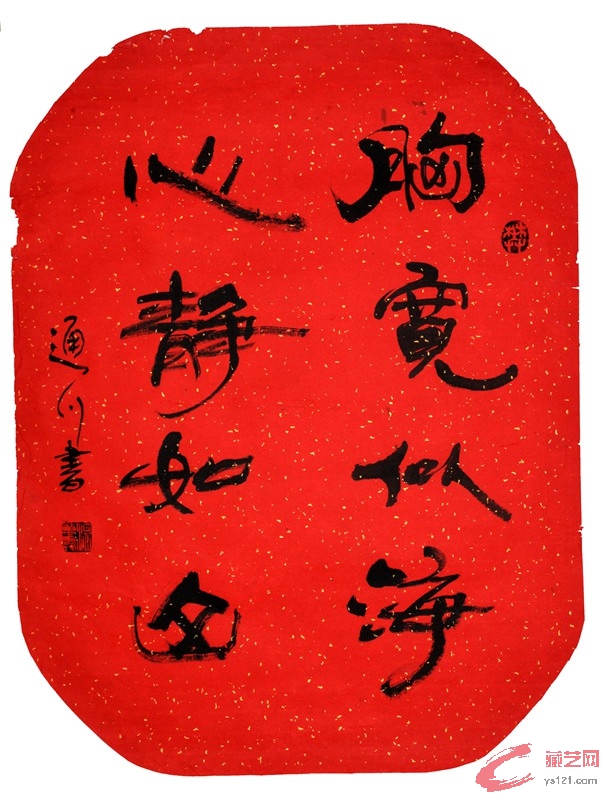 胸寬似海
心静如
通 書
藏艺网
ys121.com